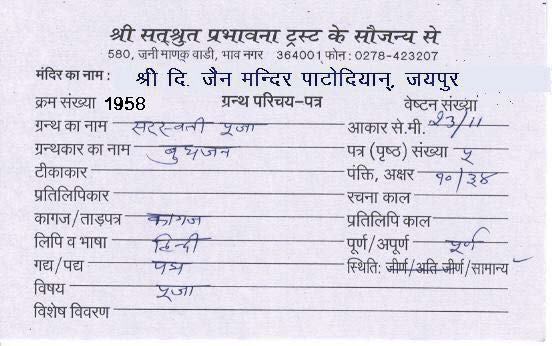 श्री सत्श्रुत प्रभावना ट्रस्ट के सौजन्य से
580, जुनी माणक वाडी, भाव नगर 364001 फोन : 0278-423207
मंदिर का नाम : श्री दि. जैन मन्दिर पाटोदियान्, जयपुर
क्रम संख्या 1958 ग्रन्थ परिचय-पत्र वेष्टन संख्या
ग्रन्थ का नाम सरस्वती पूजा आकार से.मी. 23/11
ग्रन्थकार का नाम बुधजन पत्र (पृष्ठ) संख्या ५
टीकाकार पंक्ति, अक्षर १०/३४
प्रतिलिपिकार रचना काल
कागज/ताड़पत्र कागज प्रतिलिपि काल
लिपि व भाषा हिन्दी पूर्ण/अपूर्ण पूर्ण
गद्य/पद्य पद्य स्थिति: जीर्ण/अति जीर्ण/सामान्य ✓
विषय पूजा
विशेष विवरण